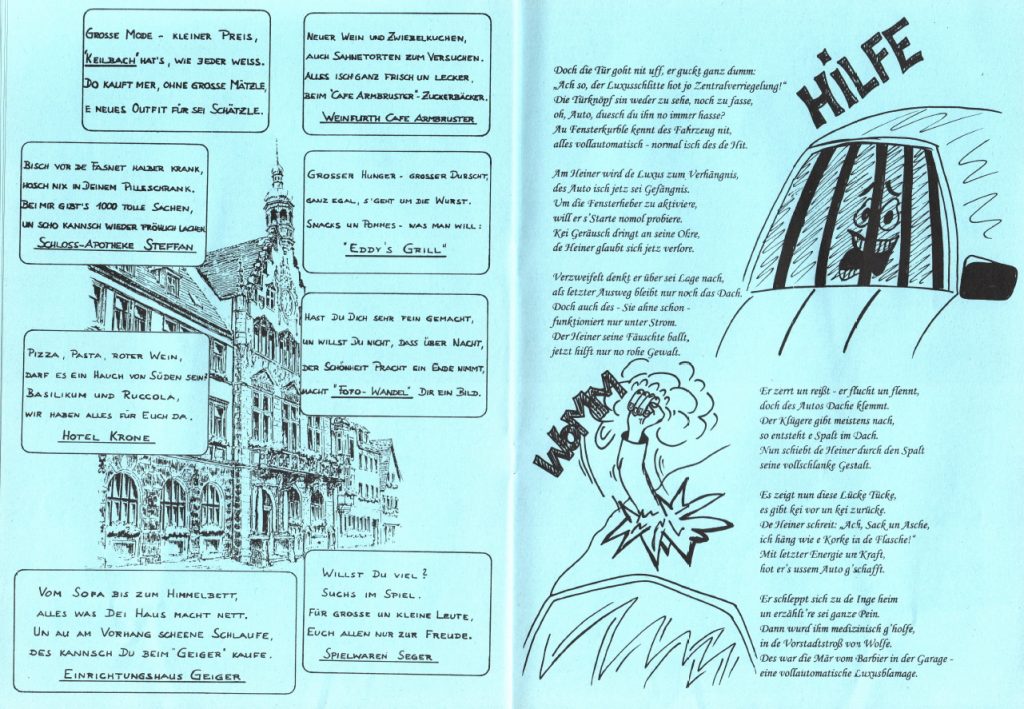 GROSSE MODE - KLEINER PREIS,
"KEILBACH" HAT'S, WIE JEDER WEISS.
DO KAUFT MER, OHNE GROSSE MÄTZLE,
E NEUES OUTFIT FÜR SEI SCHÄTZLE.
NEUER WEIN UND ZWIEBELKUCHEN,
AUCH SAHNETORTEN ZUM VERSUCHEN.
ALLES ISCH GANZ FRISCH UN LECKER,
BEIM "CAFE ARMBRUSTER"-ZUCKERBÄCKER.
WEINFURTH CAFE ARMBRUSTER
BISCH VOR DE FASNET HALBER KRANK,
HOSCH NIX IN DEINEM PILLESCHRANK.
BEI MIR GIBT'S 1000 TOLLE SACHEN,
UN SCHO KANNSCH WIEDER FRÖHLICH LACHEN.
SCHLOSS-APOTHEKE STEFFAN
GROSSER HUNGER - GROSSER DURSCHT,
GANZ EGAL, S'GEHT UM DIE WURST.
SNACKS UN POMMES - WAS MAN WILL:
"EDDY'S GRILL"
HAST DU DICH SEHR FEIN GEMACHT,
UN WILLST DU NICHT, DASS ÜBER NACHT,
DER SCHÖNHEIT PRACHT EIN ENDE NIMMT,
MACHT "FOTO-WANDEL" DIR EIN BILD.
PIZZA, PASTA, ROTER WEIN,
DARF ES EIN HAUCH VON SÜDEN SEIN?
BASILIKUM UND RUCCOLA,
WIR HABEN ALLES FÜR EUCH DA.
HOTEL KRONE
VOM SOFA BIS ZUM HIMMELBETT,
ALLES WAS DEI HAUS MACHT NETT.
UN AU AM VORHANG SCHEENE SCHLAUFE,
DES KANNSCH DU BEIM "GEIGER" KAUFE.
EINRICHTUNGSHAUS GEIGER
WILLST DU VIEL?
SUCHS IM SPIEL.
FÜR GROSSE UN KLEINE LEUTE,
EUCH ALLEN NUR ZUR FREUDE.
SPIELWAREN SEGER
HILFE
Doch die Tür goht nit uff, er guckt ganz dumm:
„Ach so, der Luxusschlitte hot jo Zentralverriegelung!"
Die Türknöpf sin weder zu sehe, noch zu fasse,
oh, Auto, duesch du ihn no immer hasse?
Au Fensterkurble kennt des Fahrzeug nit,
alles vollautomatisch - normal isch des de Hit.
Am Heiner wird de Luxus zum Verhängnis,
des Auto isch jetz sei Gefängnis.
Um die Fensterheber zu aktiviere,
will er s'Starte nomol probiere.
Kei Geräusch dringt an seine Ohre,
de Heiner glaubt sich jetz verlore.
Verzweifelt denkt er über sei Lage nach,
als letzter Ausweg bleibt nur noch das Dach.
Doch auch des - Sie ahne schon -
funktioniert nur unter Strom.
Der Heiner seine Fäuschte ballt,
jetzt hilft nur no rohe Gewalt.
WOMM
Er zerrt un reißt - er flucht un flennt,
doch des Autos Dache klemmt.
Der Klügere gibt meistens nach,
so entsteht e Spalt im Dach.
Nun schiebt de Heiner durch den Spalt
seine vollschlanke Gestalt.
Es zeigt nun diese Lücke Tücke,
es gibt kei vor un kei zurücke.
De Heiner schreit: „Ach, Sack un Asche,
ich häng wie e Korke in de Flasche!"
Mit letzter Energie un Kraft,
hot er's ussem Auto g'schafft.
Er schleppt sich zu de Inge heim
un erzählt're sei ganze Pein.
Dann wurd ihm medizinisch g'holfe,
in de Vorstadtstroß von Wolfe.
Des war die Mär vom Barbier in der Garage -
eine vollautomatische Luxusblamage.